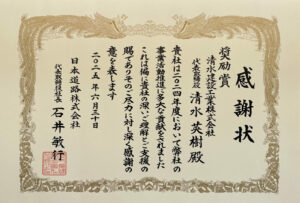 感謝状
奨励賞
清水建設工業株式会社
代表取締役 清水英樹 殿
貴社は二〇二四年度において弊社の
事業活動推進に多大な貢献をされました
これは偏に貴社の深いご理解とご支援の
賜でありそのご尽力に対し深く感謝の
意を表します
二〇二五年六月二十日
日本道路株式会社
代表取締役社長 石井敏行